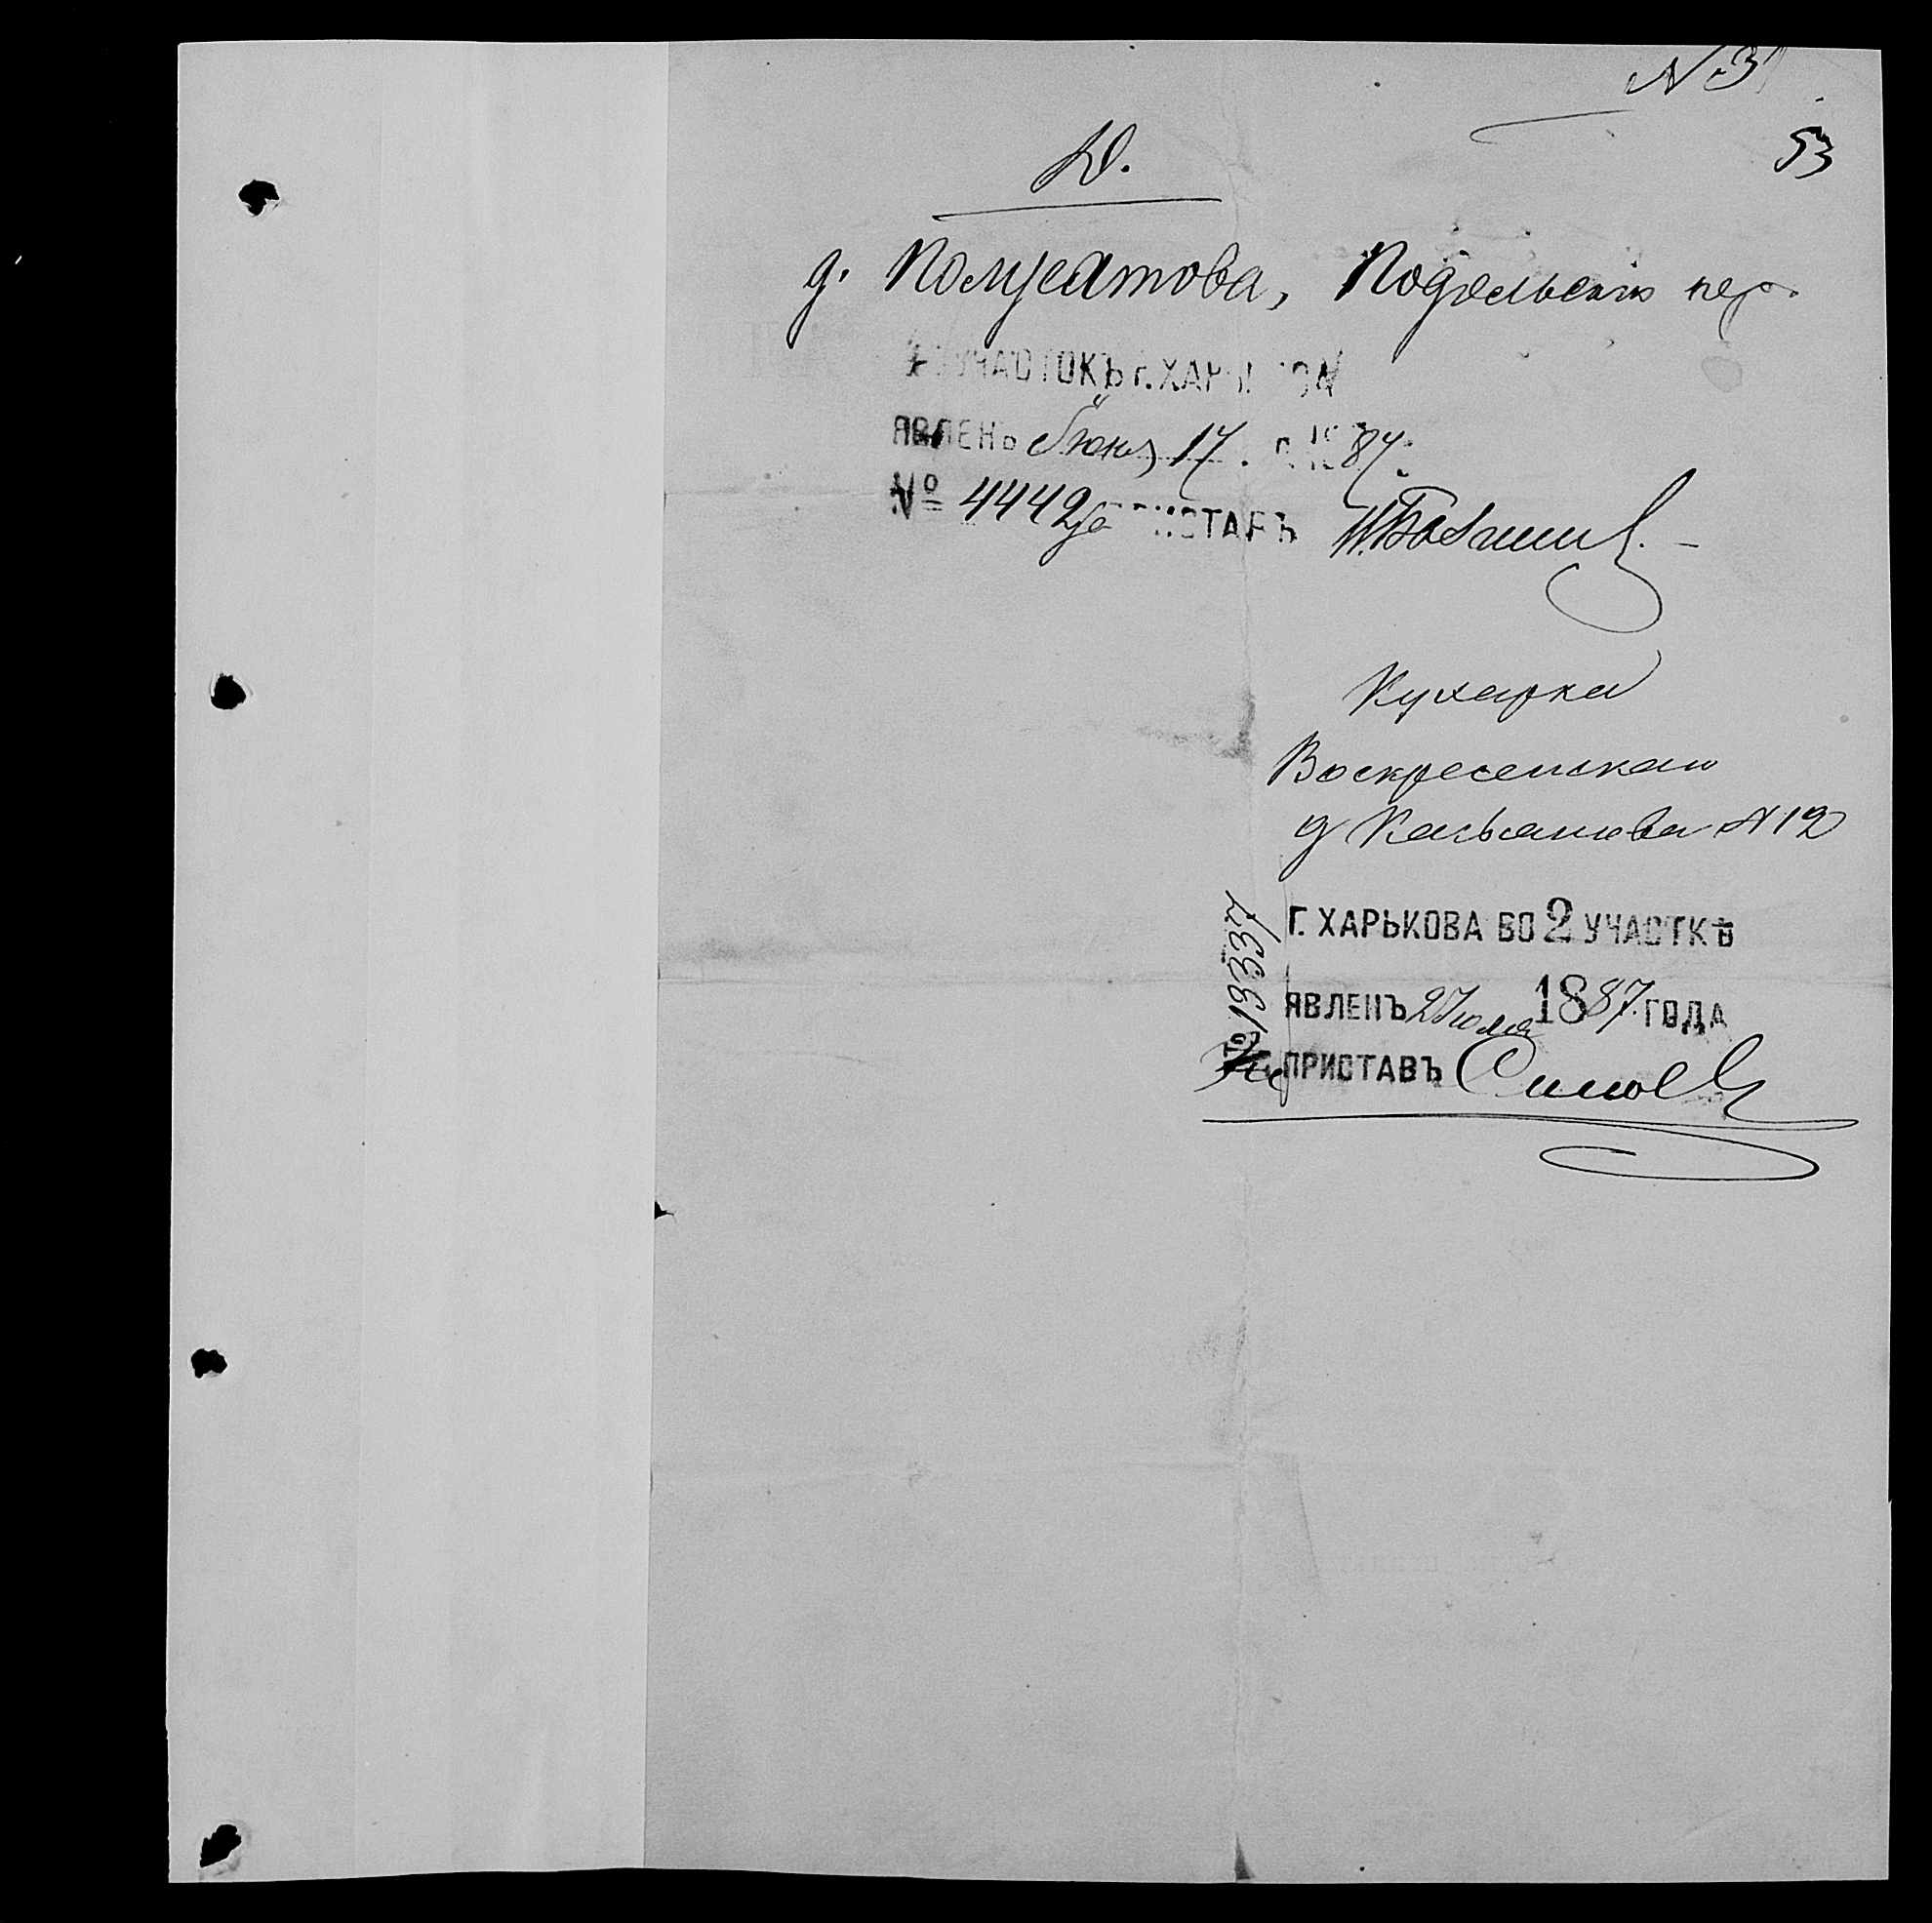 N 3
53
Ю.
д. Полуехтова, Подольскій пер.
УЧАСТОКЪ г. ХАРЬКОВА
ЯВЛЕНЪ Іюня 17. 1887.
№ 4442 ПРИСТАВЪ
Кухарка
Воскресенская
д Касьянова N 12
Г. ХАРЬКОВА ВО 2 УЧАСТКѢ
ЯВЛЕНЪ 2 Іюля 1887 ГОДА
ПРИСТАВЪ